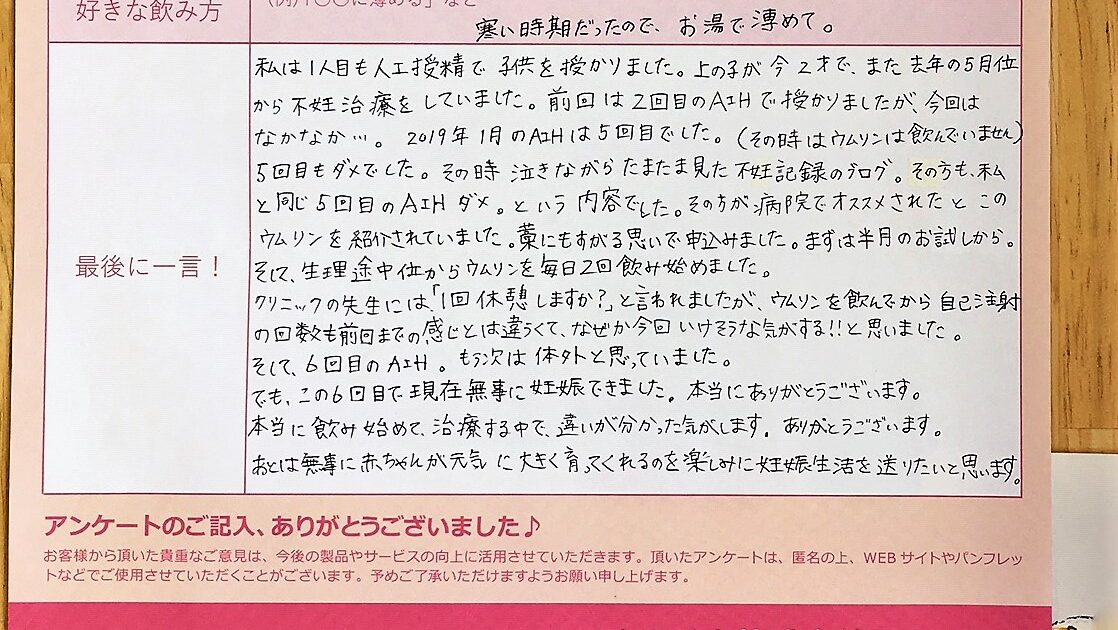 好きな飲み方
に薄める」など
寒い時期だったので、お湯で薄めて。
最後に一言！
私は1人目も人工授精で子供を授かりました。上の子が今2才で、また去年の5月位
から不妊治療をしていました。前回は2回目のAIHで授かりましたが、今回は
なかなか…。2019年1月のAIHは5回目でした。(その時はウムリンは飲んでいません)
5回目もダメでした。その時泣きながらたまたま見た不妊記録のブログ。その方も、私
と同じ5回目のAIHダメ。という内容でした。その方が病院でオススメされたとこの
ウムリンを紹介されていました。藁にもすがる思いで申込みました。まずは半月のお試しから。
そして、生理途中位からウムリンを毎日2回飲み始めました。
クリニックの先生には、「1回休憩しますか?」と言われましたが、ウムリンを飲んでから自己注射
の回数も前回までの感じとは違うくて、なぜか今回いけそうな気がする!!と思いました。
そして、6回目のAIH。もう次は体外と思っていました。
でも、この6回目で現在無事に妊娠できました。本当にありがとうございます。
本当に飲み始めて、治療する中で、違いが分かった気がします。ありがとうございます。
あとは無事に赤ちゃんが元気に大きく育ってくれるのを楽しみに妊娠生活を送りたいと思います。
アンケートのご記入、ありがとうございました♪
お客様から頂いた貴重なご意見は、今後の製品やサービスの向上に活用させていただきます。頂いたアンケートは、匿名の上、WEBサイトやパンフレッ
トなどでご使用させていただくことがございます。予めご了承いただけますようお願い申し上げます。